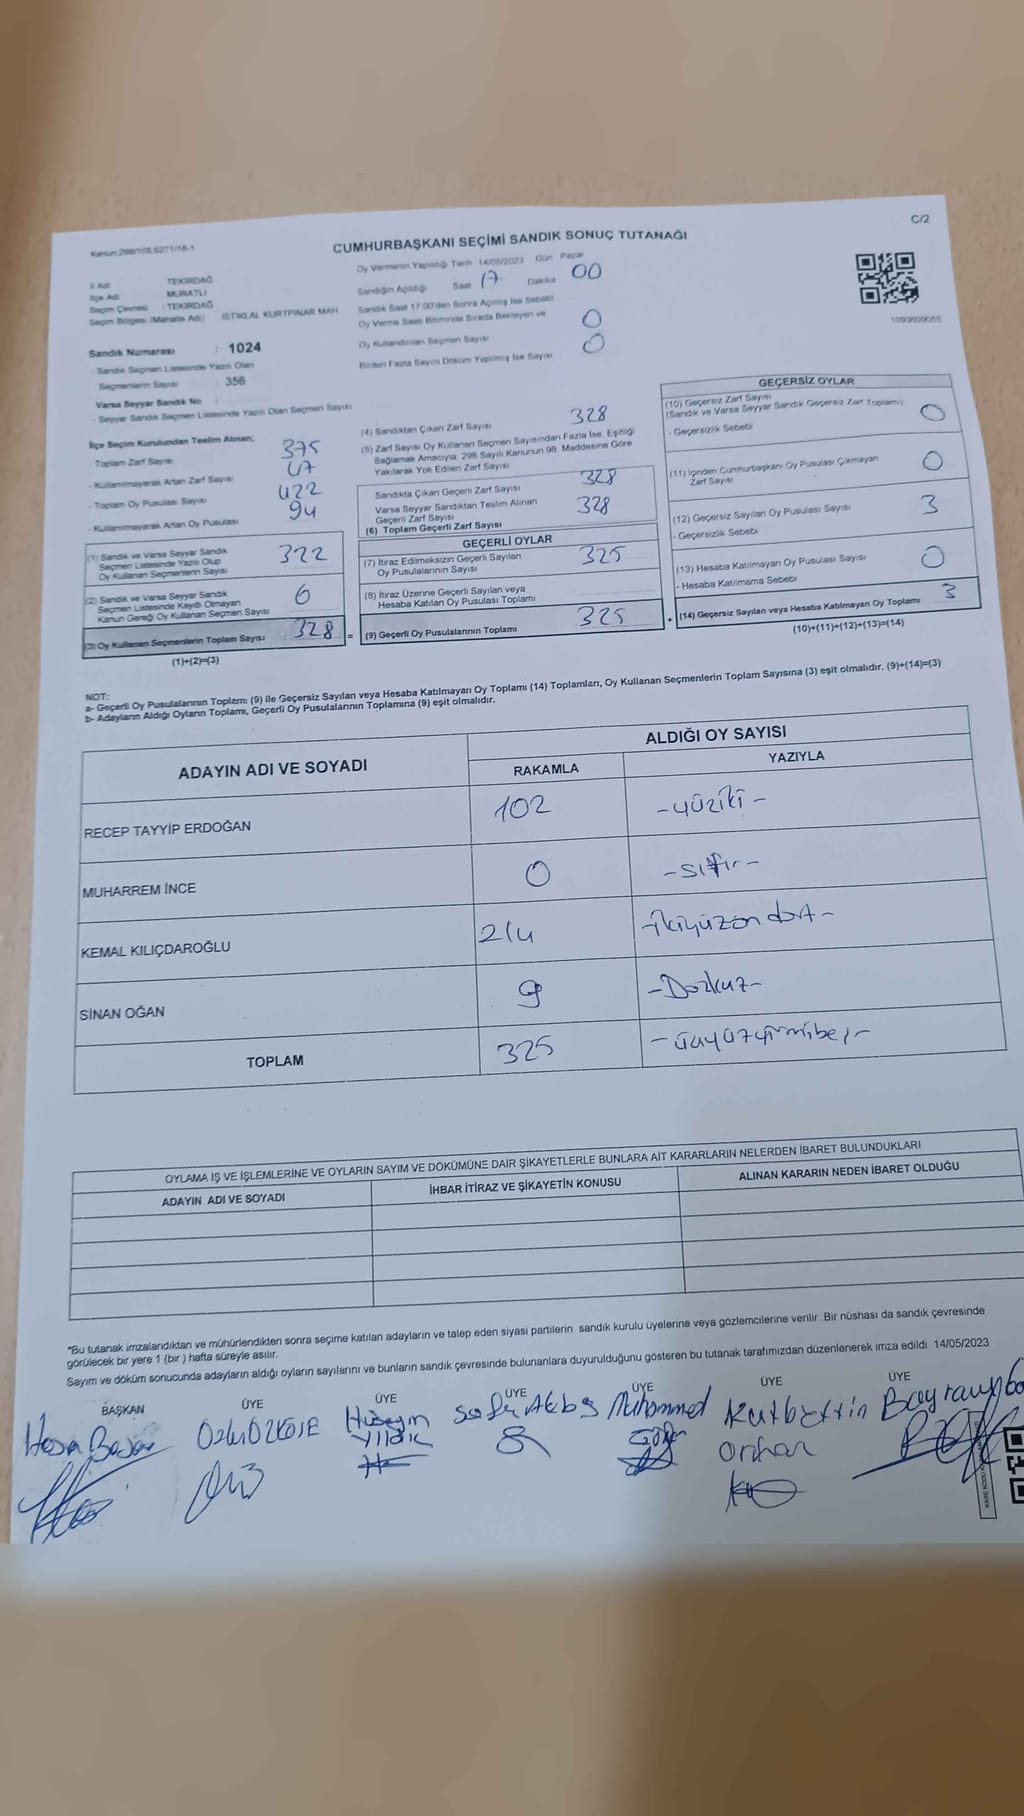 C/2
Kanun:298/105 6271/18-1
CUMHURBAŞKANI SEÇİMİ SANDIK SONUÇ TUTANAĞI
İl Adı : TEKİRDAĞ
İlçe Adı : MURATLI
Seçim Çevresi : TEKİRDAĞ
Seçim Bölgesi (Mahalle Adı) : İSTİKLAL KURTPINAR MAH.
Oy Vermenin Yapıldığı Tarih 14/05/2023 Gün Pazar
Sandığın Açıldığı Saat 17 Dakika 00
Sandık Saat 17.00'den Sonra Açılmış İse Sebebi
Oy Verme Saati Bitiminde Sırada Bekleyen ve
Oy Kullandırılan Seçmen Sayısı 0
Birden Fazla Sayım Döküm Yapılmış İse Sayısı 0
1093609055
Sandık Numarası : 1024
- Sandık Seçmen Listesinde Yazılı Olan
Seçmenlerin Sayısı : 356
Varsa Seyyar Sandık No :
- Seyyar Sandık Seçmen Listesinde Yazılı Olan Seçmen Sayısı
İlçe Seçim Kurulundan Teslim Alınan;
- Toplam Zarf Sayısı 375
- Kullanılmayarak Artan Zarf Sayısı 47
- Toplam Oy Pusulası Sayısı 422
- Kullanılmayarak Artan Oy Pusulası 94
(1) Sandık ve Varsa Seyyar Sandık
Seçmen Listesinde Yazılı Olup
Oy Kullanan Seçmenlerin Sayısı 322
(2) Sandık ve Varsa Seyyar Sandık
Seçmen Listesinde Kayıtlı Olmayan
Kanun Gereği Oy Kullanan Seçmen Sayısı 6
(3) Oy Kullanan Seçmenlerin Toplam Sayısı 328 =
(1)+(2)=(3)
(4) Sandıktan Çıkan Zarf Sayısı 328
(5) Zarf Sayısı Oy Kullanan Seçmen Sayısından Fazla İse, Eşitliği
Sağlamak Amacıyla, 298 Sayılı Kanunun 98. Maddesine Göre
Yakılarak Yok Edilen Zarf Sayısı
Sandıkta Çıkan Geçerli Zarf Sayısı 328
Varsa Seyyar Sandıktan Teslim Alınan
Geçerli Zarf Sayısı
(6) Toplam Geçerli Zarf Sayısı 328
GEÇERLİ OYLAR
(7) İtiraz Edilmeksizin Geçerli Sayılan
Oy Pusulalarının Sayısı 325
(8) İtiraz Üzerine Geçerli Sayılan veya
Hesaba Katılan Oy Pusulası Toplamı
(9) Geçerli Oy Pusulalarının Toplamı 325 +
GEÇERSİZ OYLAR
(10) Geçersiz Zarf Sayısı
(Sandık ve Varsa Seyyar Sandık Geçersiz Zarf Toplamı) 0
- Geçersizlik Sebebi
(11) İçinden Cumhurbaşkanı Oy Pusulası Çıkmayan
Zarf Sayısı 0
(12) Geçersiz Sayılan Oy Pusulası Sayısı 3
- Geçersizlik Sebebi
(13) Hesaba Katılmayan Oy Pusulası Sayısı 0
- Hesaba Katılmama Sebebi
(14) Geçersiz Sayılan veya Hesaba Katılmayan Oy Toplamı 3
(10)+(11)+(12)+(13)=(14)
NOT:
a- Geçerli Oy Pusulalarının Toplamı (9) ile Geçersiz Sayılan veya Hesaba Katılmayan Oy Toplamı (14) Toplamları, Oy Kullanan Seçmenlerin Toplam Sayısına (3) eşit olmalıdır. (9)+(14)=(3)
b- Adayların Aldığı Oyların Toplamı, Geçerli Oy Pusulalarının Toplamına (9) eşit olmalıdır.
ADAYIN ADI VE SOYADI
ALDIĞI OY SAYISI
RAKAMLA YAZIYLA
RECEP TAYYİP ERDOĞAN 102 -yüziki-
MUHARREM İNCE 0 -sıfır-
KEMAL KILIÇDAROĞLU 214 -ikiyüzon dört-
SİNAN OĞAN 9 -Dozkuz-
TOPLAM 325 -üçyüzyirmibeş-
OYLAMA İŞ VE İŞLEMLERİNE VE OYLARIN SAYIM VE DÖKÜMÜNE DAİR ŞİKAYETLERLE BUNLARA AİT KARARLARIN NELERDEN İBARET BULUNDUKLARI
ADAYIN ADI VE SOYADI İHBAR İTİRAZ VE ŞİKAYETİN KONUSU ALINAN KARARIN NEDEN İBARET OLDUĞU
*Bu tutanak imzalandıktan ve mühürlendikten sonra seçime katılan adayların ve talep eden siyasi partilerin sandık kurulu üyelerine veya gözlemcilerine verilir. Bir nüshası da sandık çevresinde
görülecek bir yere 1 (bir) hafta süreyle asılır.
Sayım ve döküm sonucunda adayların aldığı oyların sayılarını ve bunların sandık çevresinde bulunanlara duyurulduğunu gösteren bu tutanak tarafımızdan düzenlenerek imza edildi. 14/05/2023
BAŞKAN ÜYE ÜYE ÜYE ÜYE ÜYE ÜYE
Hüseyin Muhammed Kutbettin
Yıldız Orhan